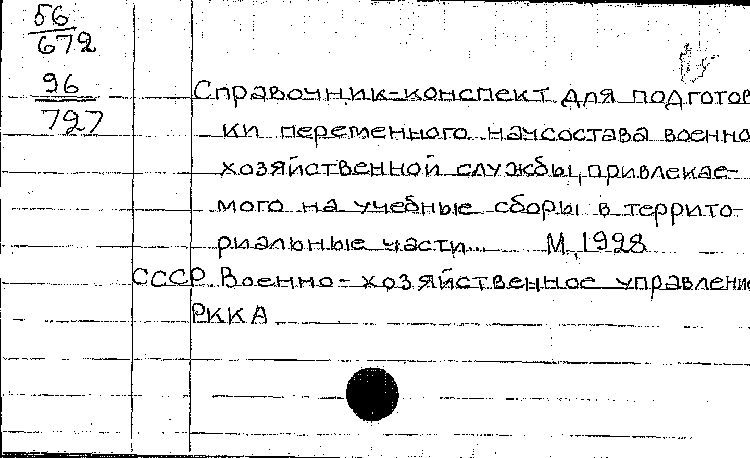 56
672
96
727
Справочник-конспект для подготов
ки переменного начсостава военно
хозяйственной службы, привлекае-
мого на учебные сборы в террито-
риальные части... М, 1928
СССР. Военно-хозяйственное управление
РККА